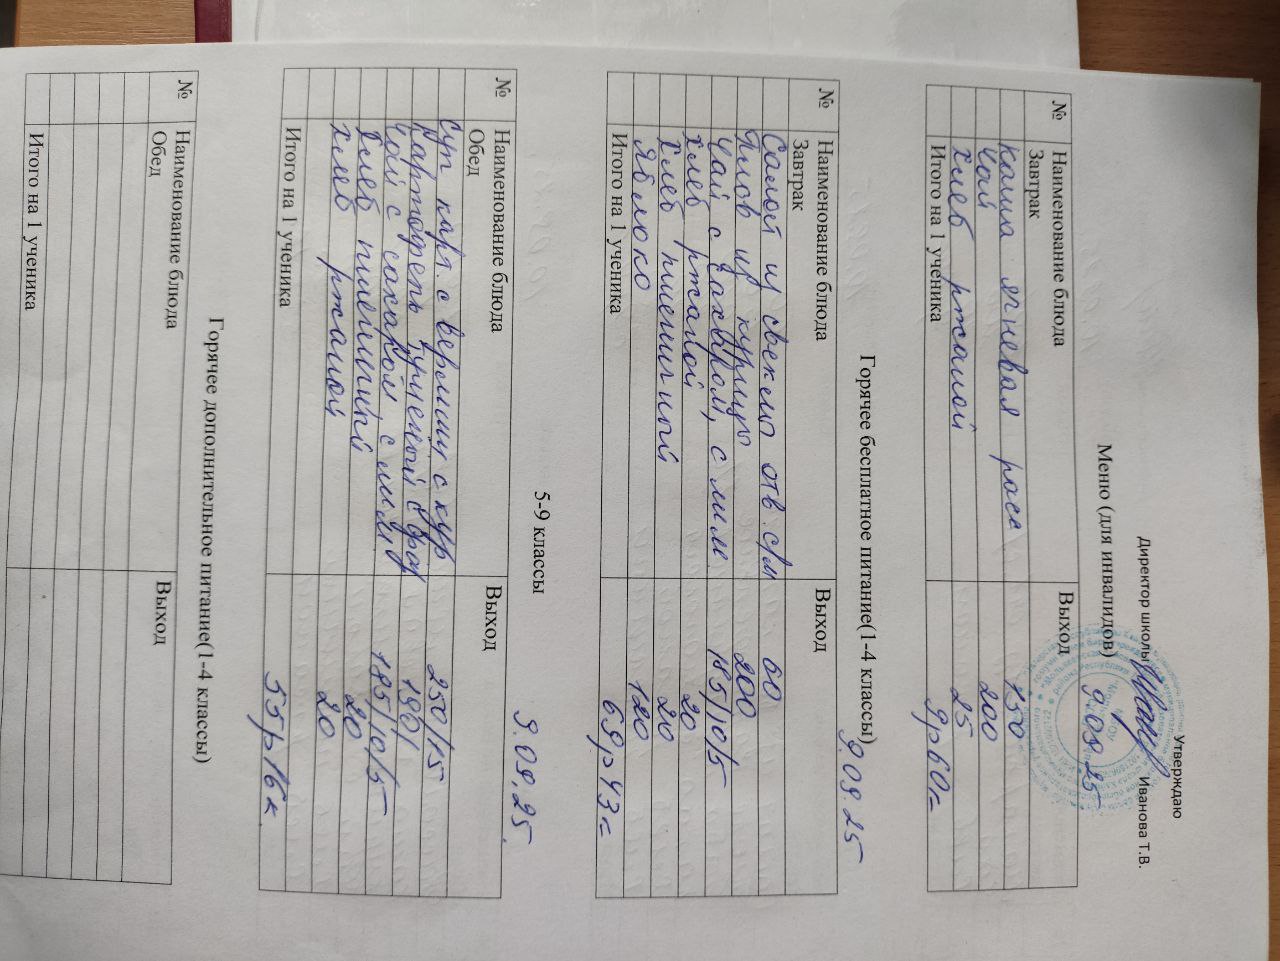 Утверждаю
Директор школы Иванова Т.В.
Меню (для инвалидов) 9.09.25
№ Наименование блюда Выход
Завтрак
каша ячневая расс 150
чай 200
хлеб ржаной 25
Итого на 1 ученика 9р60к
Горячее бесплатное питание(1-4 классы) 9.09.25
№ Наименование блюда Выход
Завтрак
Салат из свеклы отв. с/м 60
Плов из курицы 200
Чай с сахаром, с лим. 185/10/5
хлеб ржаной 20
хлеб пшеничный 20
Яблоко 120
Итого на 1 ученика 69р43к
5-9 классы 9.09.25.
№ Наименование блюда Выход
Обед
Суп карт. с верми с кур 250/15
Картофель тушеный с 190/
Чай с сахаром с лим 185/10/5
Хлеб пшеничный 20
хлеб ржаной 20
Итого на 1 ученика 55р16к
Горячее дополнительное питание(1-4 классы)
№ Наименование блюда Выход
Обед
Итого на 1 ученика